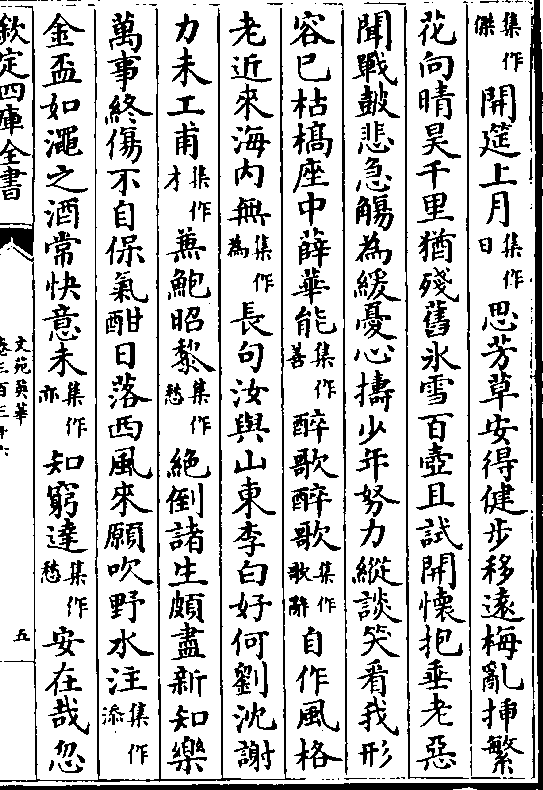 集作傑開筵上月集作日思芳草安得健步移遠梅亂揷繁
花向晴昊千里猶殘舊氷雪百壺且試開懷抱垂老惡
聞戰鼓悲急觴為緩憂心擣少年努力縱談笑看我形
容已枯槁座中薛華能集作善醉歌醉歌集作歌辭自作風格
老近來海内無集作為長句汝與山東李白好何劉沈謝
力未工甫集作才蕪鮑昭黎集作愁絶倒諸生頗盡新知樂
萬事終傷不自保氣酣日落西風來願吹野水注集作添
金盃如澠之酒常快意未集作亦知窮達集作愁安在哉忽
欽定四庫全書
文苑英華
卷三百三十六
五